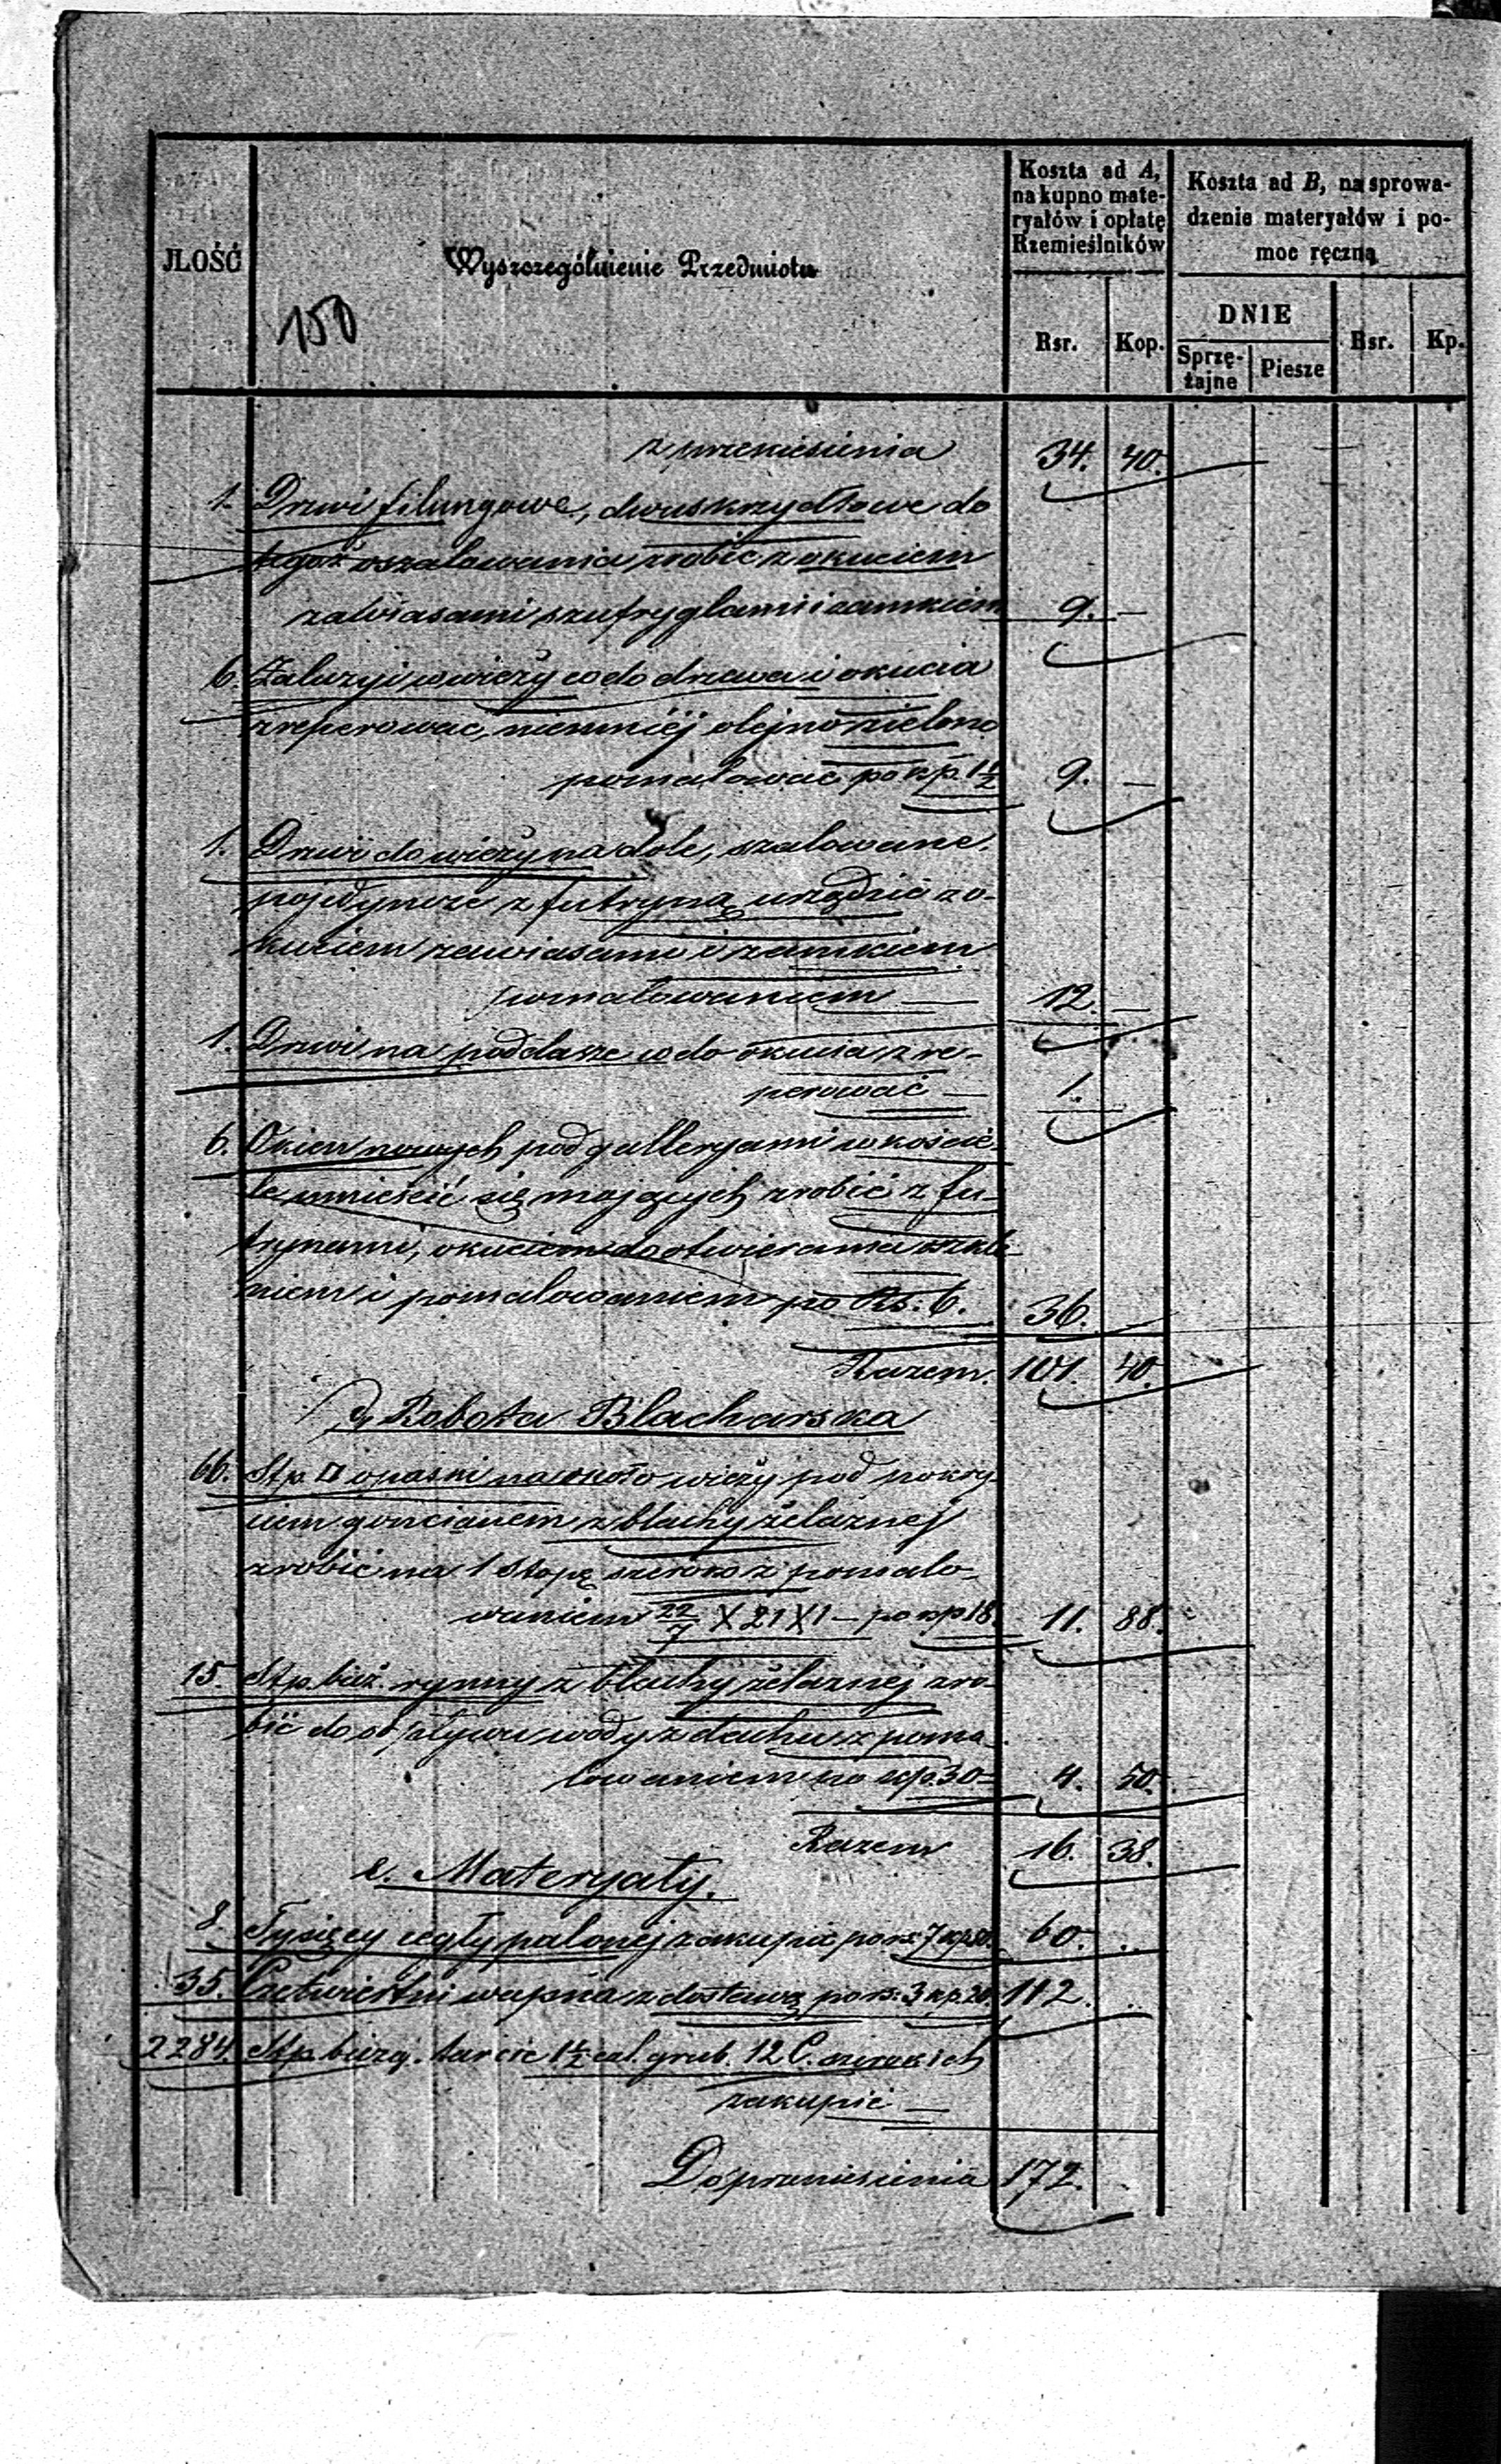 JLOŚĆ
Wyszczególnienie Przedmiotu
150
Koszta ad A,
na kupno mate-
ryałów i opłatę
Rzemieślników
Koszta ad B, na sprowa-
dzenie materyałów i po-
moc ręczną
Rsr.
Kop.
DNIE
Sprzę-
żajne
Piesze
Rsr.
Kp.
z przeniesienia 34. 40.
1. Drzwi filungowe, dwuskrzydłowe do
tegoż oszalowania zrobić z okuciem
zawiasami szufryglami i zamkiem 9. —
6. Żaluzyi w wieży co do drzewa i okucia
zreperować, niemniéj olejno zielono
pomalować po rp. 1½ 9. —
1. Drzwi do wieży na dole, szalowane,
pojedyncze z futryną urządzić z o-
kuciem zawiasami i zamkiem
pomalowaniem — 12. —
1. Drzwi na poddasze co do okucia zre-
perować — 1.
6. Okien nowych pod galleryami w koście-
le umieścić się mających zrobić z fu-
trynami, okuciem do otwierania oszkle-
niem i pomalowaniem po Rs. 6. 36. —
Razem. 101. 40.
d, Robota Blacharska
66. Stp. □ opaski naokoło wieży pod pokry-
ciem goncianem z blachy żelaznej
zrobić na 1 stopę szeroko z pomalo-
waniem 22/7 X 21 X 1 — po kp 18. 11. 88.
15. Stp. bież. rynny z blachy żelaznej zro-
bić do odpływu wody z dachu z poma-
lowaniem po kp. 30 = 4. 50.
Razem 16. 38.
e. Materyały.
8. Tysięcy cegły palonej zakupić po rs. 7 kp 50. 60. ..
35. Czetwiertni wapna z dostawą po rs. 3 kp. 20. 112. .
2284. Stp. bieżą. tarcic 1½ cal. grub. 12 C. szerokich
zakupić —
Do przeniesienia 172. .